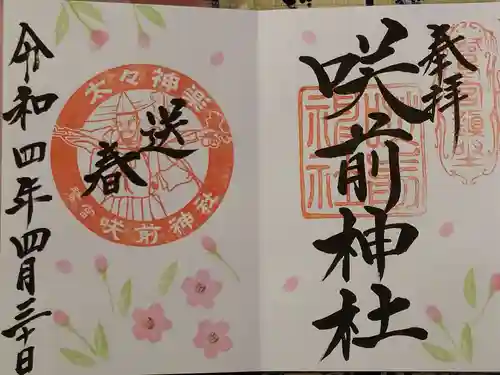 奉拝
咲前神社
送春
太々神楽
咲前神社
令和四年四月三十日